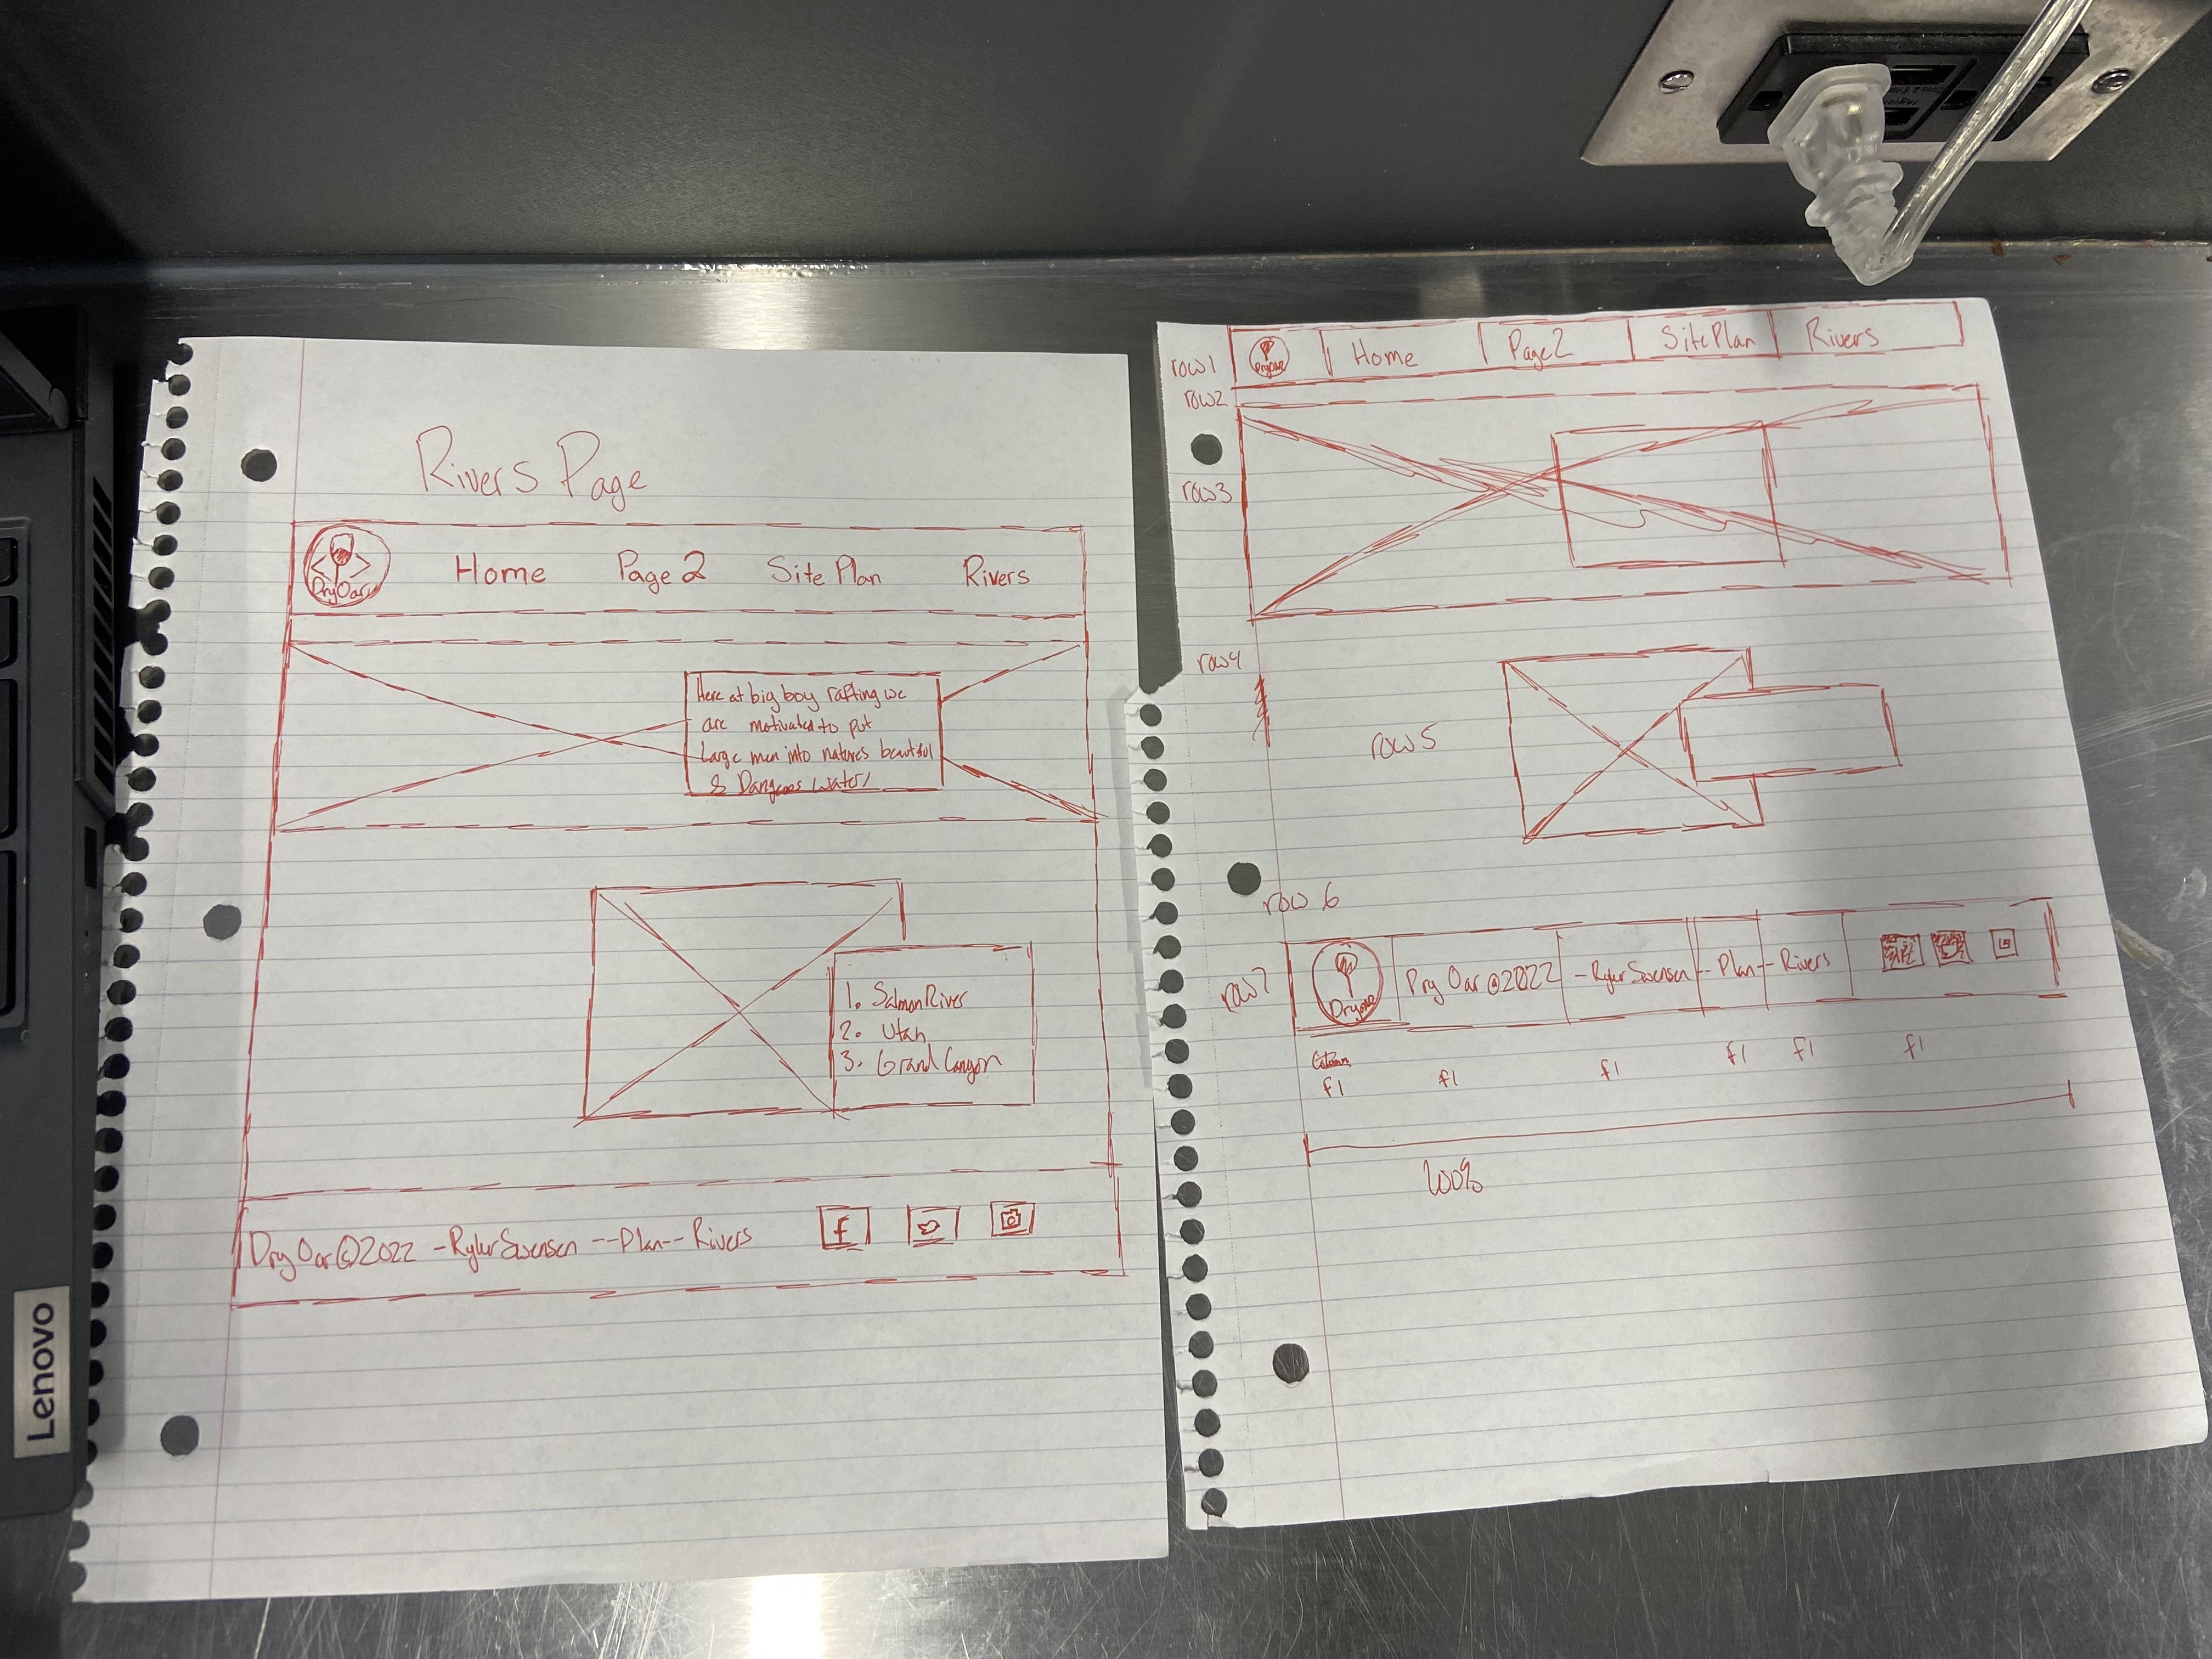 Rivers Page
Dry Oar
Home Page 2 Site Plan Rivers
Here at big boy rafting we
are motivated to put
Large men into natures beautiful
& Dangeros Water/
1. Salmon River
2. Utah
3. Grand Canyon
Dry Oar ©2022 -Ryler Swensen --Plan-- Rivers
f
Lenovo
row1 Dry Oar Home Page2 Site Plan Rivers
row2
row3
row4
row5
row 6
row7 Dry Oar Dry Oar ©2022 -Ryler Swensen -- Plan -- Rivers
Column
f1 f1 f1 f1 f1 f1
100%